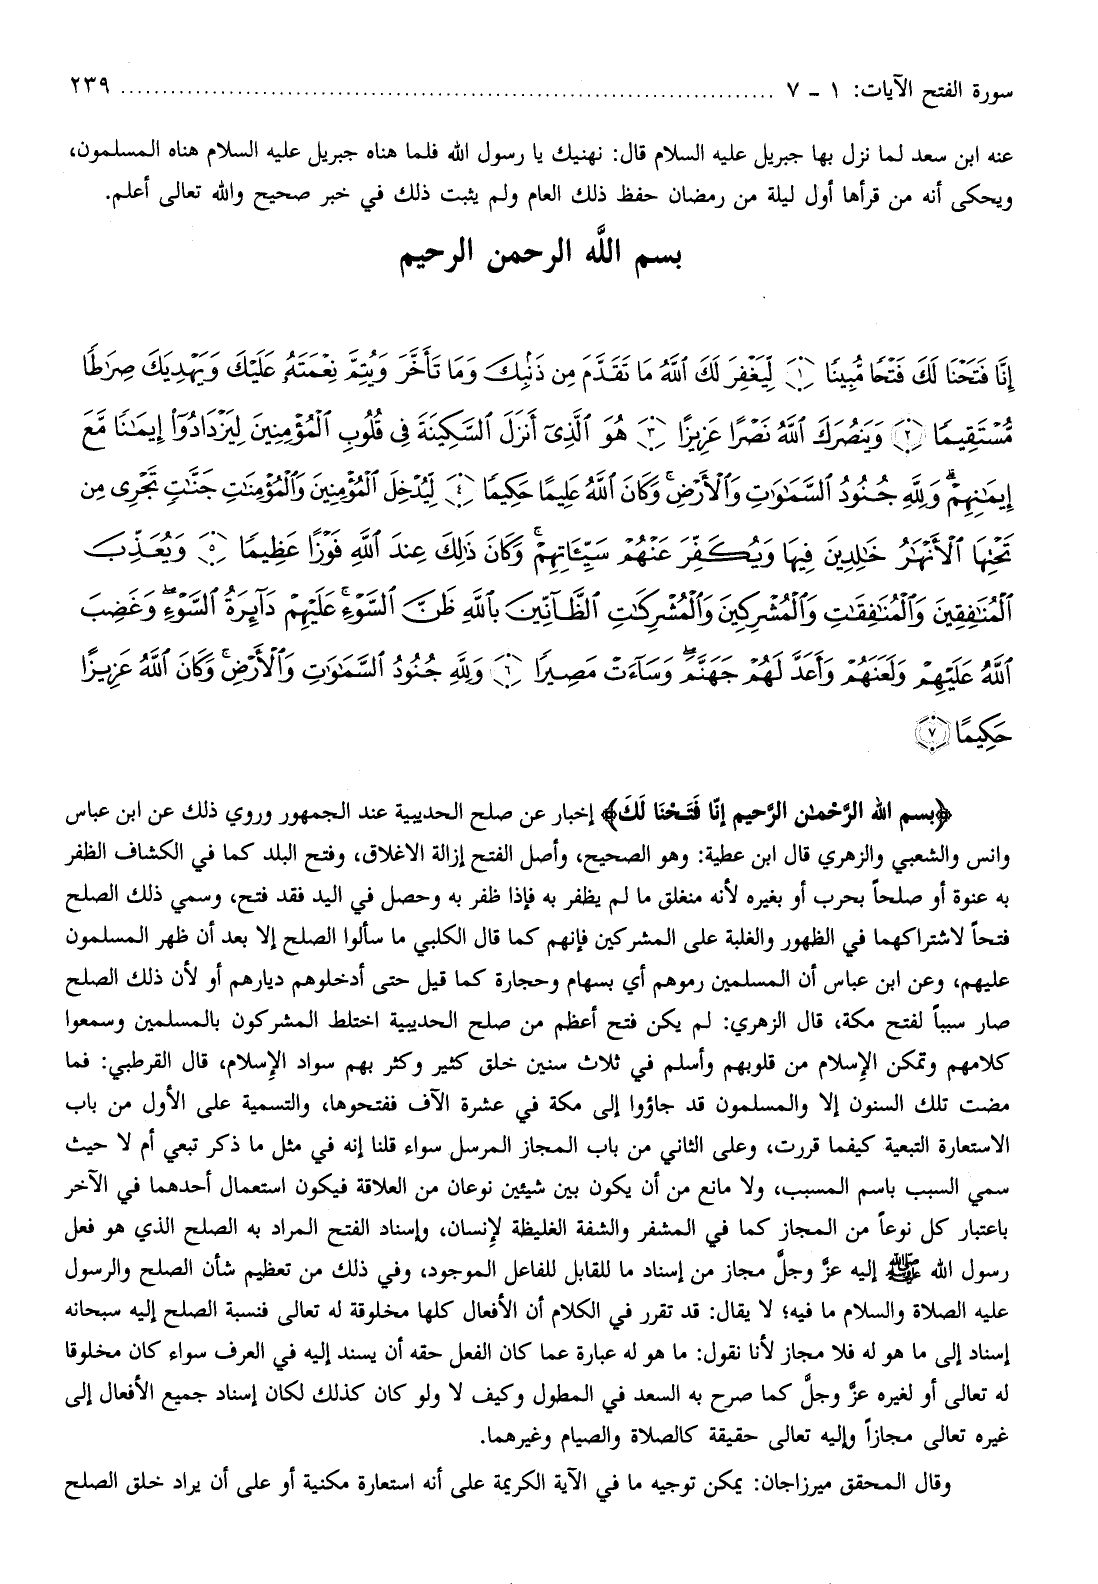 سورة الفتح الآيات: ١ - ٧ ........................................................................ ٢٣٩
عنه ابن سعد لما نزل بها جبريل عليه السلام قال: نهنيك يا رسول الله فلما هناه جبريل عليه السلام هناه المسلمون،
ويحكى أنه من قرأها أول ليلة من رمضان حفظ ذلك العام ولم يثبت ذلك في خبر صحيح والله تعالى أعلم.
بسم اللَّه الرحمن الرحيم
إِنَّا فَتَحْنَا لَكَ فَتْحًا مُّبِينًا ﴿١﴾ لِّيَغْفِرَ لَكَ ٱللَّهُ مَا تَقَدَّمَ مِن ذَنۢبِكَ وَمَا تَأَخَّرَ وَيُتِمَّ نِعْمَتَهُۥ عَلَيْكَ وَيَهْدِيَكَ صِرَٰطًا
مُّسْتَقِيمًا ﴿٢﴾ وَيَنصُرَكَ ٱللَّهُ نَصْرًا عَزِيزًا ﴿٣﴾ هُوَ ٱلَّذِىٓ أَنزَلَ ٱلسَّكِينَةَ فِى قُلُوبِ ٱلْمُؤْمِنِينَ لِيَزْدَادُوٓا۟ إِيمَٰنًا مَّعَ
إِيمَٰنِهِمْ ۗ وَلِلَّهِ جُنُودُ ٱلسَّمَٰوَٰتِ وَٱلْأَرْضِ ۚ وَكَانَ ٱللَّهُ عَلِيمًا حَكِيمًا ﴿٤﴾ لِّيُدْخِلَ ٱلْمُؤْمِنِينَ وَٱلْمُؤْمِنَٰتِ جَنَّٰتٍ تَجْرِى مِن
تَحْتِهَا ٱلْأَنْهَٰرُ خَٰلِدِينَ فِيهَا وَيُكَفِّرَ عَنْهُمْ سَيِّـَٔاتِهِمْ ۚ وَكَانَ ذَٰلِكَ عِندَ ٱللَّهِ فَوْزًا عَظِيمًا ﴿٥﴾ وَيُعَذِّبَ
ٱلْمُنَٰفِقِينَ وَٱلْمُنَٰفِقَٰتِ وَٱلْمُشْرِكِينَ وَٱلْمُشْرِكَٰتِ ٱلظَّآنِّينَ بِٱللَّهِ ظَنَّ ٱلسَّوْءِ ۚ عَلَيْهِمْ دَآئِرَةُ ٱلسَّوْءِ ۖ وَغَضِبَ
ٱللَّهُ عَلَيْهِمْ وَلَعَنَهُمْ وَأَعَدَّ لَهُمْ جَهَنَّمَ ۖ وَسَآءَتْ مَصِيرًا ﴿٦﴾ وَلِلَّهِ جُنُودُ ٱلسَّمَٰوَٰتِ وَٱلْأَرْضِ ۚ وَكَانَ ٱللَّهُ عَزِيزًا
حَكِيمًا ﴿٧﴾
﴿بسم الله الرَّحْمٰن الرَّحيم إنَّا فَتَحْنا لَكَ﴾ إخبار عن صلح الحديبية عند الجمهور وروي ذلك عن ابن عباس
وانس والشعبي والزهري قال ابن عطية: وهو الصحيح، وأصل الفتح إزالة الاغلاق، وفتح البلد كما في الكشاف الظفر
به عنوة أو صلحاً بحرب أو بغيره لأنه منغلق ما لم يظفر به فإذا ظفر به وحصل في اليد فقد فتح، وسمي ذلك الصلح
فتحاً لاشتراكهما في الظهور والغلبة على المشركين فإنهم كما قال الكلبي ما سألوا الصلح إلا بعد أن ظهر المسلمون
عليهم، وعن ابن عباس أن المسلمين رموهم أي بسهام وحجارة كما قيل حتى أدخلوهم ديارهم أو لأن ذلك الصلح
صار سبباً لفتح مكة، قال الزهري: لم يكن فتح أعظم من صلح الحديبية اختلط المشركون بالمسلمين وسمعوا
كلامهم وتمكن الإسلام من قلوبهم وأسلم في ثلاث سنين خلق كثير وكثر بهم سواد الإسلام، قال القرطبي: فما
مضت تلك السنون إلا والمسلمون قد جاؤوا إلى مكة في عشرة الآف ففتحوها، والتسمية على الأول من باب
الاستعارة التبعية كيفما قررت، وعلى الثاني من باب المجاز المرسل سواء قلنا إنه في مثل ما ذكر تبعي أم لا حيث
سمي السبب باسم المسبب، ولا مانع من أن يكون بين شيئين نوعان من العلاقة فيكون استعمال أحدهما في الآخر
باعتبار كل نوعاً من المجاز كما في المشفر والشفة الغليظة لإنسان، وإسناد الفتح المراد به الصلح الذي هو فعل
رسول الله ﷺ إليه عزَّ وجلَّ مجاز من إسناد ما للقابل للفاعل الموجود، وفي ذلك من تعظيم شأن الصلح والرسول
عليه الصلاة والسلام ما فيه؛ لا يقال: قد تقرر في الكلام أن الأفعال كلها مخلوقة له تعالى فنسبة الصلح إليه سبحانه
إسناد إلى ما هو له فلا مجاز لأنا نقول: ما هو له عبارة عما كان الفعل حقه أن يسند إليه في العرف سواء كان مخلوقا
له تعالى أو لغيره عزَّ وجلَّ كما صرح به السعد في المطول وكيف لا ولو كان كذلك لكان إسناد جميع الأفعال إلى
غيره تعالى مجازاً وإليه تعالى حقيقة كالصلاة والصيام وغيرهما.
وقال المحقق ميرزاجان: يمكن توجيه ما في الآية الكريمة على أنه استعارة مكنية أو على أن يراد خلق الصلح